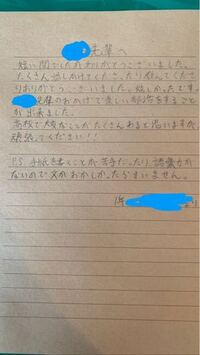 先輩へ
短い間でしたがありがとうございました。
たくさん話しかけてくださったり教えてくださ
りありがとうございました。嬉しかったです。
先輩のおかげで楽しい部活をすること
が出来ました。
高校で大変なことがたくさんあると思いますが
頑張ってください!!
P.S 手紙を書くことが苦手だったり語彙力が
ないので文がおかしかったらすいません。
1年
より